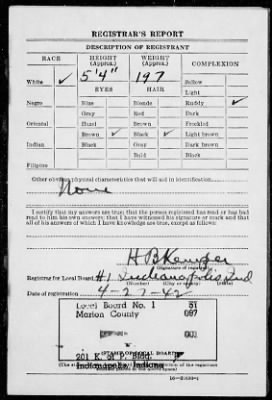 REGISTRAR'S REPORT
DESCRIPTION OF REGISTRANT
RACE HEIGHT (Approx.) WEIGHT (Approx.) COMPLEXION
White ✓ 5'4" 197 Sallow
EYES HAIR Light
Negro Blue Blonde Ruddy ✓
Gray Red Dark
Oriental Hazel Brown Freckled
Brown ✓ Black ✓ Light brown
Indian Black Gray Dark brown
Bald Black
Filipino
Other obvious physical characteristics that will aid in identification
None
I certify that my answers are true; that the person registered has read or has had
read to him his own answers; that I have witnessed his signature or mark and that
all of his answers of which I have knowledge are true, except as follows:
H B Kemper
(Signature of registrar)
Registrar for Local Board #1 Indianapolis Ind
(Number) (City or county) (State)
Date of registration 4-27-42
Local Board No. 1 31
Marion County 097
001
201 K. of P. Bldg.
(STAMP OF LOCAL BOARD)
Indianapolis, Indiana